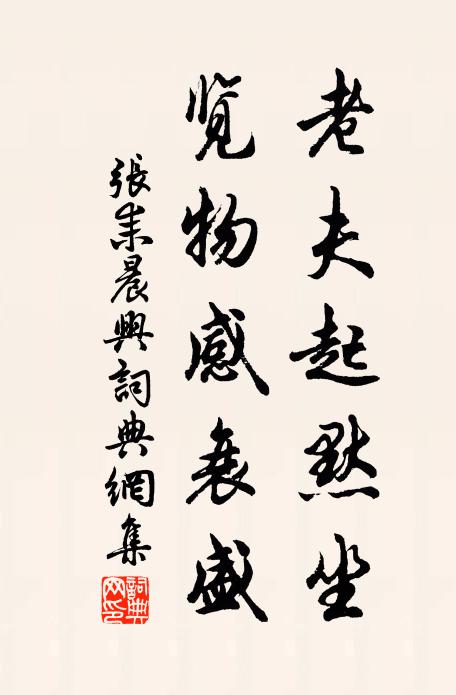 老夫起默坐
览物感衰盛
張耒晨興詞典網集
詞典网印